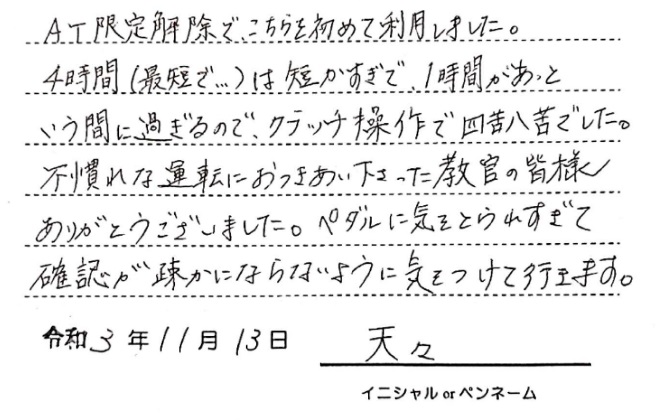 AT限定解除で、こちらを初めて利用しました。
4時間(最短で…)は短かすぎで、1時間があっと
いう間に過ぎるので、クラッチ操作で四苦八苦でした。
不慣れな運転におつきあい下さった教官の皆様
ありがとうございました。ペダルに気をとられすぎて
確認が疎かにならないように気をつけて行きます。
令和3年11月13日 天々
イニシャルorペンネーム